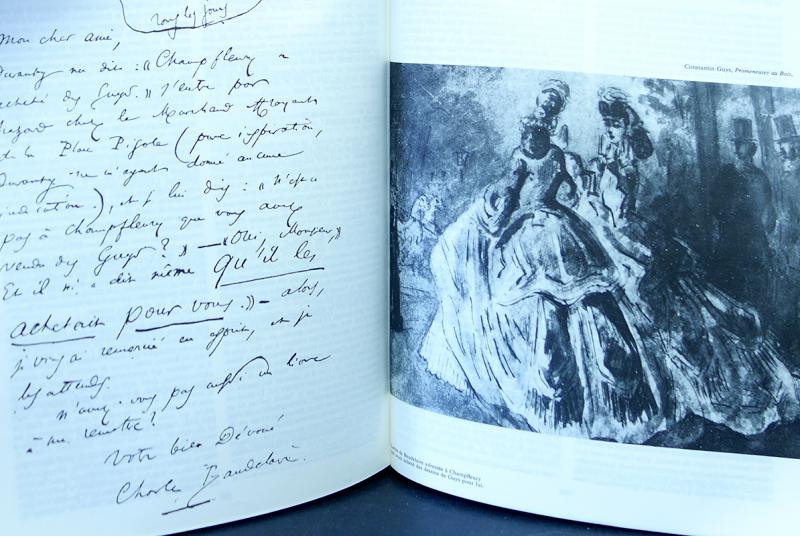 tous les jours
Mon cher ami,
Duranty me dit : « Champfleury a
acheté des Guys. » J'entre par
hazard chez le Marchand
de la Place Pigale (pure inspiration,
Duranty ne m'ayant donné aucune
indication.), et je lui dis : « n'est-ce
pas à Champfleury que vous avez
vendu des Guys ? » — « Oui, Monsieur, »
Et il m'a dit même qu'il les
achetait pour vous. » — alors,
je vous ai remercié en esprit, et je
les attends.
N'avez-vous pas aussi un livre
à me remettre ?
Votre bien Dévoué
Charles Baudelaire.
Constantin Guys, Promeneuses au Bois.
de Baudelaire adressée à Champfleury
avait acheté des dessins de Guys pour lui.